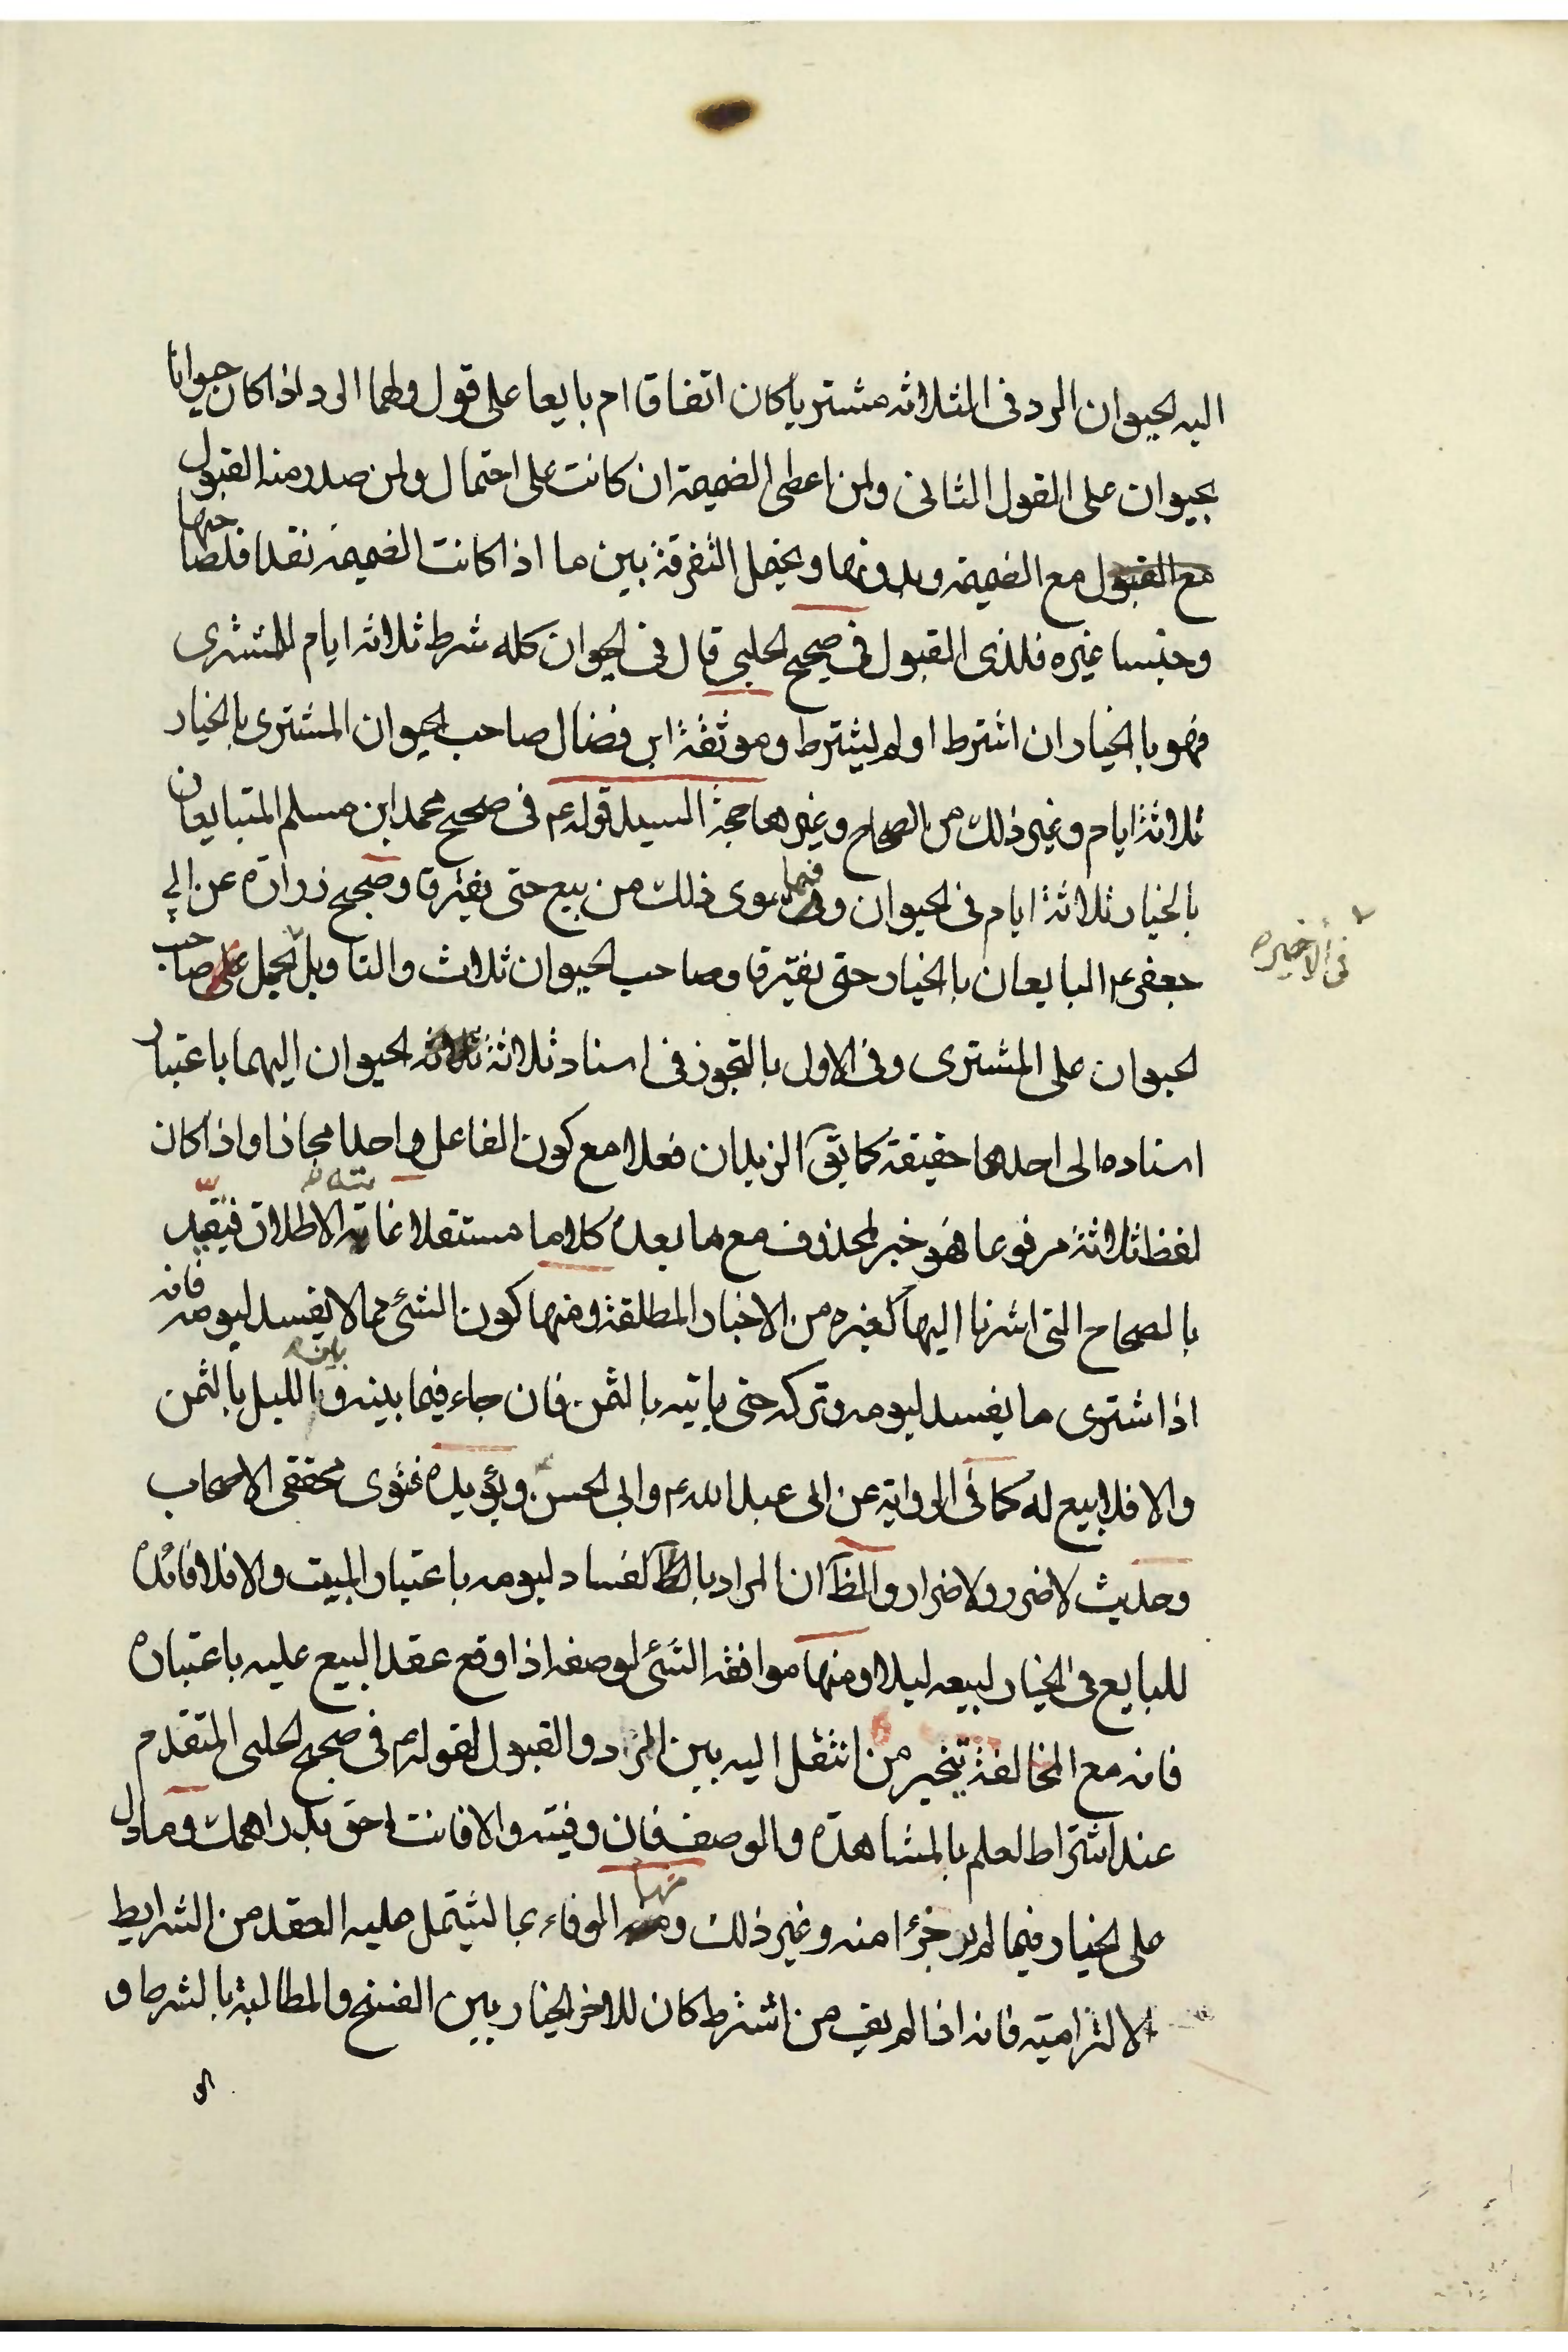 اليه الحيوان الرد فى الثلاثه مشتريا كان اتفاقا ام بايعا على قول ولهما الرد اذا كان حيوانا
بحيوان على القول الثانى ولمن اعطى الضميمة ان كانت على احتمال ولمن صدر منه القبول
مع الضميمه وبدونها ويحتمل التفرقة بين ما اذا كانت الضميمه نقدا فلصاحبها
وجنسا غيره فلذى القبول فى صحيح الحلبى قال فى الحيوان كله شرط ثلاثه ايام للمشترى
فهو بالخيار ان اشترط او لم يشترط وموثقة ابن فضال صاحب الحيوان المشترى بالخيار
ثلاثة ايام وغير ذلك من الصحاح وغيرها حجة السيد قوله ع فى صحيح محمد ابن مسلم المتبايعان
بالخيار ثلاثة ايام فى الحيوان وفيما سوى ذلك من بيع حتى يفترقا وصحيح زرارة عن ابى
جعفر ع البايعان بالخيار حتى يفترقا وصاحب الحيوان ثلاث والتاويل بحمل صاحب
فى الاخيره
الحيوان على المشترى وفى الاول بالتجوز فى اسناد ثلاثة الحيوان اليهما باعتبار
اسناده الى احدهما حقيقة كما يق الزيدان فعلا مع كون الفاعل واحدا مجازا واذا كان
لفظ ثلاثة مرفوعا فهو خبر لمحذوف مع ما بعده كلاما مستقلا غايته الاطلاق فيقيد
بالصحاح التى اشرنا اليها كغيره من الاخبار المطلقة ومنها كون الشئ مما لا يفسد ليومه فانه
اذا اشترى ما يفسد ليومه وتركه حتى ياتيه بالثمن فان جاء فيما بينه وبين الليل بالثمن
والا فلا بيع له كما فى الرواية عن ابى عبد الله ع وابى الحسن ع ويؤيده فتوى محققى الاصحاب
وحديث لا ضرر ولا ضرار والظ ان المراد بالفساد ليومه باعتبار المبيت والا فلا فائدة
للبايع فى الخيار لبيعه ليلا ومنها موافقه الشئ لوصفه اذا وقع عقد البيع عليه باعتباره
فانه مع المخالفة يتخير من انتقل اليه بين الرد والقبول لقوله ع فى صحيح الحلبى المتقدم
عند اشتراط العلم بالمشاهدة والوصف فان وفيته والا فانت احق بدراهمك وما دل
على الخيار فيما لم ير جزءا منه وغير ذلك ومنها الوفاء بما يشتمل عليه العقد من الشرايط
الالتزاميه فانه اذا لم يف من اشترط كان للاخر الخيار بين الفسخ والمطالبة بالشرط و